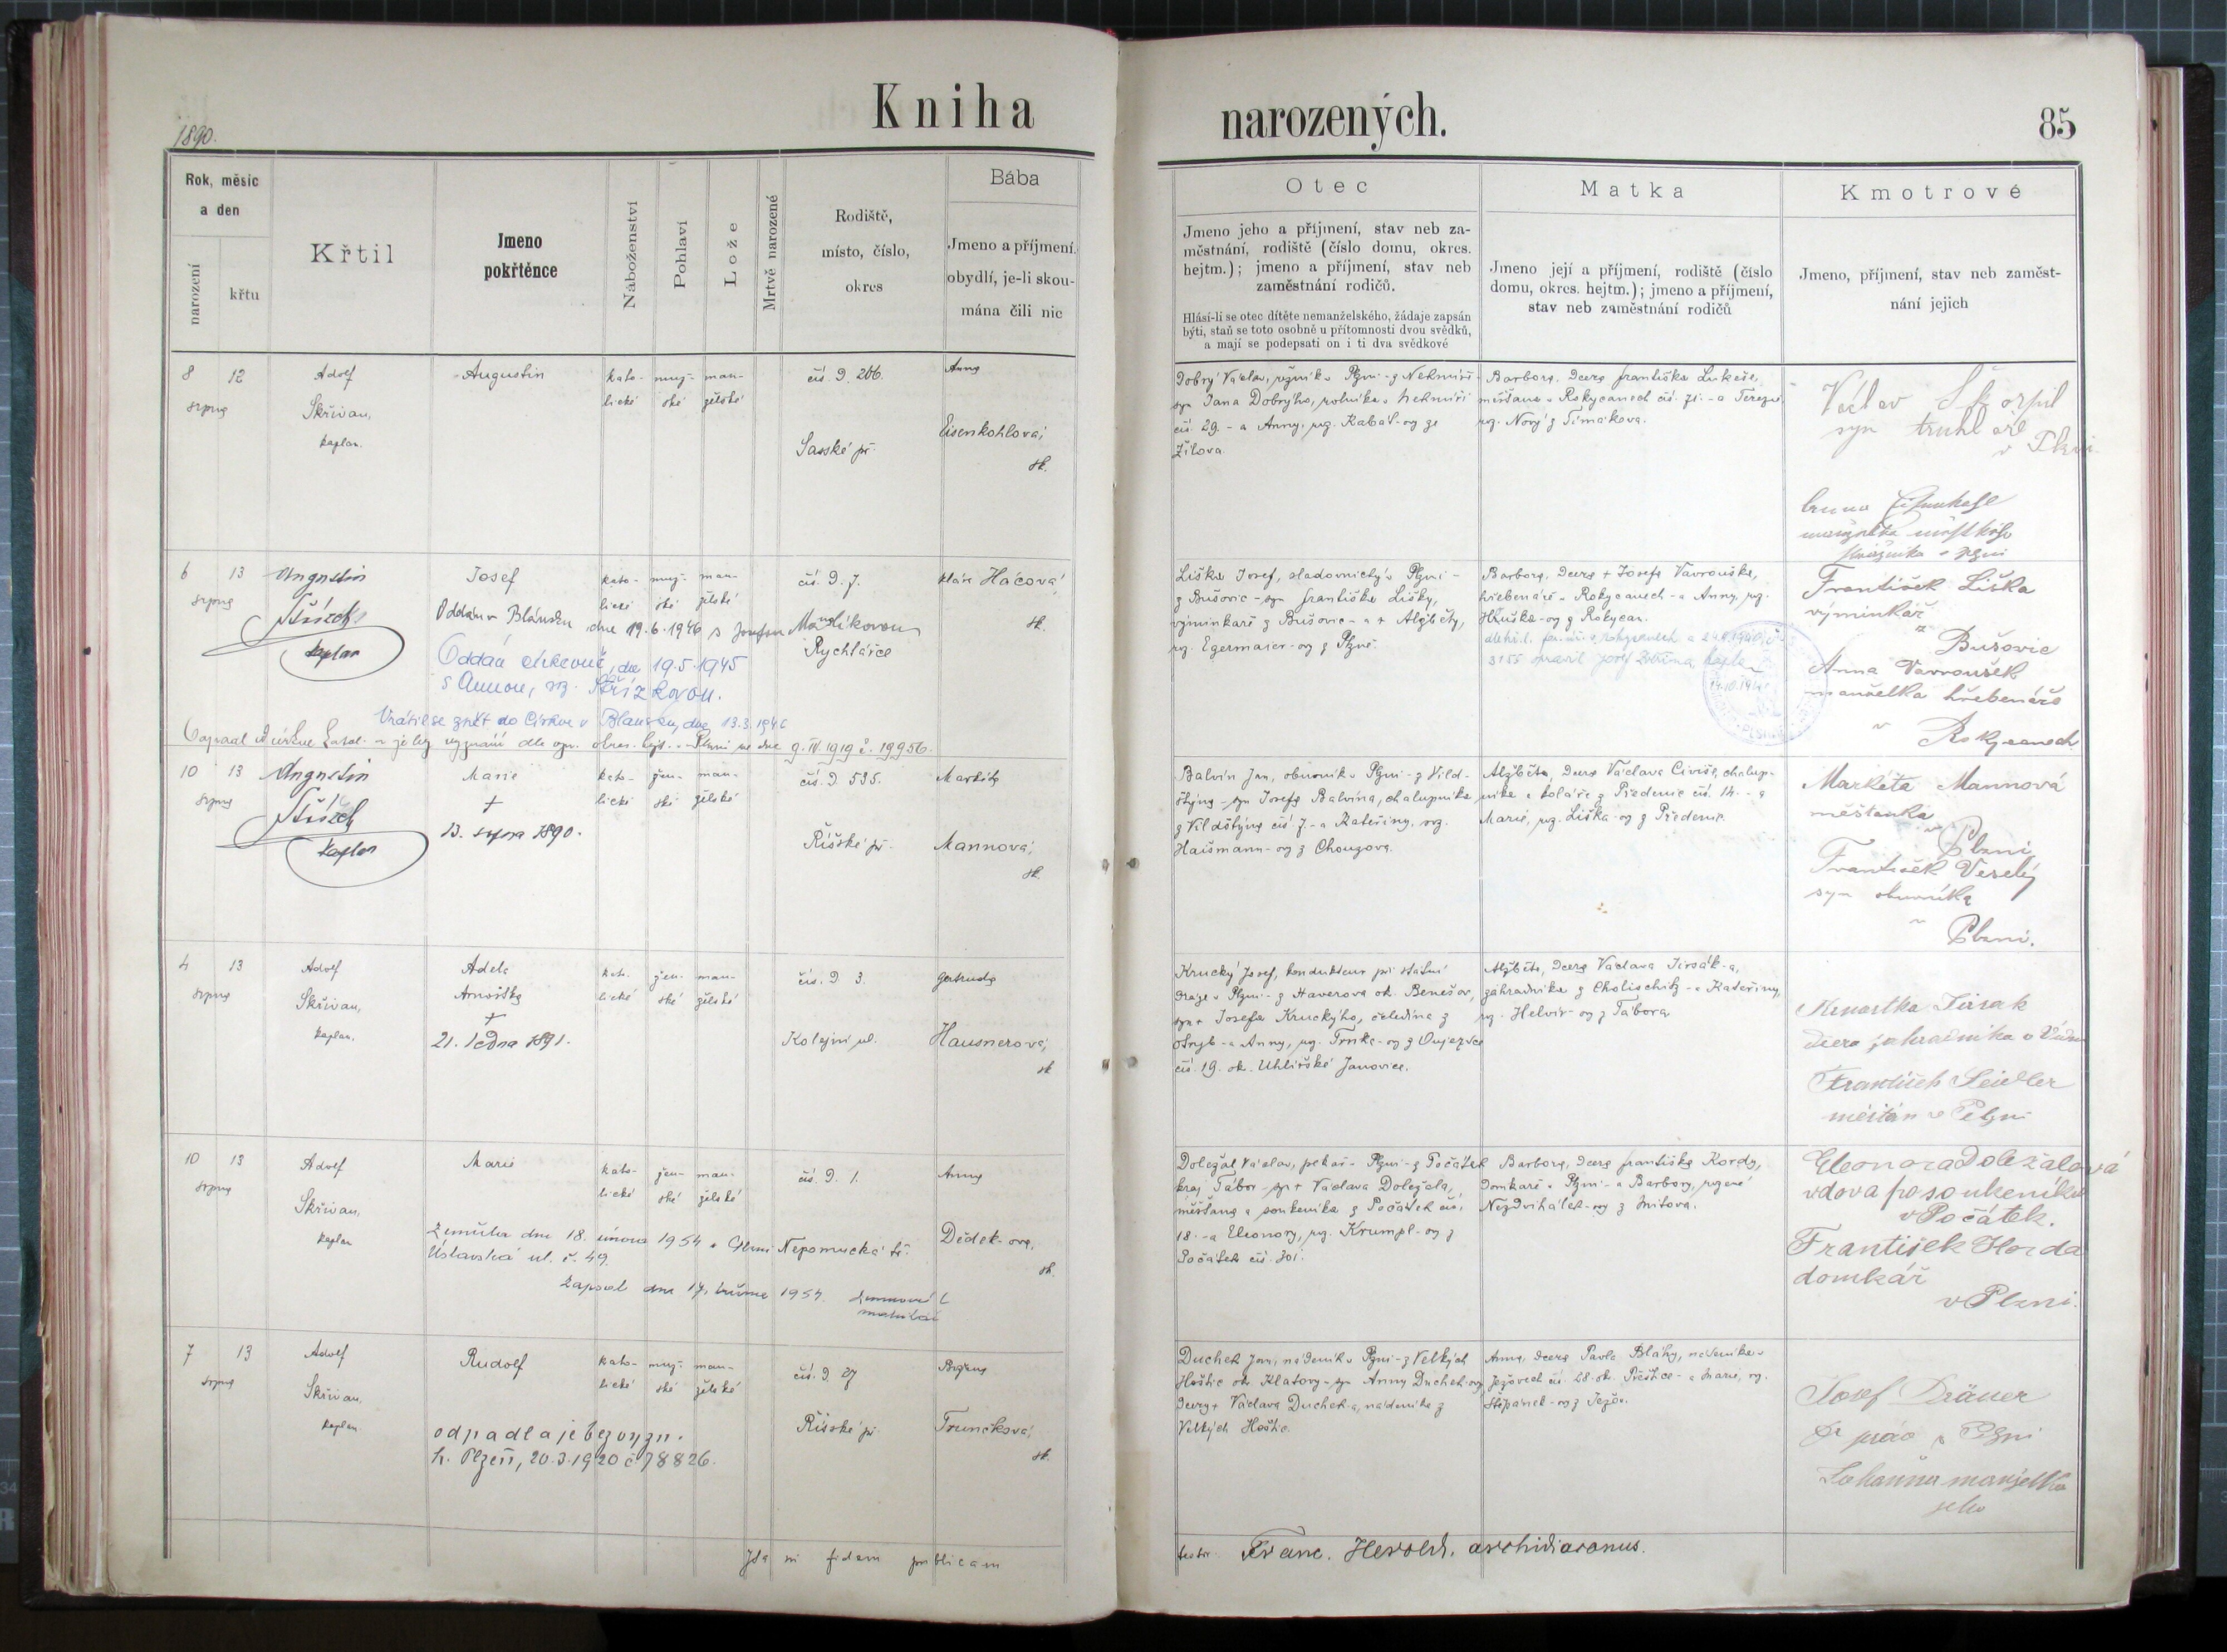 Kniha
narozených.
85
1890.
Rok, měsíc
a den
narození
křtu
Křtil
Jmeno
pokřtěnce
Náboženství
Pohlaví
Lože
Mrtvě narozené
Rodiště,
místo, číslo,
okres
Bába
Jmeno a příjmení,
obydlí, je-li skou-
mána čili nic
Otec
Jmeno jeho a příjmení, stav neb za-
městnání, rodiště (číslo domu, okres.
hejtm.); jmeno a příjmení, stav neb
zaměstnání rodičů.
Hlásí-li se otec dítěte nemanželského, žádaje zapsán
býti, staň se toto osobně u přítomnosti dvou svědků,
a mají se podepsati on i ti dva svědkové
Matka
Jmeno její a příjmení, rodiště (číslo
domu, okres. hejtm.); jmeno a příjmení,
stav neb zaměstnání rodičů
Kmotrové
Jmeno, příjmení, stav neb zaměst-
nání jejich
8
srpna
12
Adolf
Skřivan,
kaplan.
Augustin
kato-
lické
muž-
ské
man-
želské
čís. D. 206.
Saské př.
Anna
Eisenkohlová,
sk.
Dobrý Václav, řezník v Plzni - z Nekmíř
syn Jana Dobrýho, rolníka v Nekmíři
čís. 29. - a Anny, roz. Kabát-ový ze
Žilova
Barbora, dcera Františka Lukeše,
měšťana v Rokycanech čís. 71. - a Terezie
roz. Nový z Timákova.
Václav Škorpil
syn truhláře
v Plzni
6
srpna
13
Augustin
kaplan
Josef
Oddán v Blansku dne 19.6.1946 s Josefou Mandlíkovou
Oddán církevně, dne 19.5.1945
s Annou, roz. Střízkovou.
Vrátil se zpět do Církve v Blansku, dne 13.3.1946
kato-
lické
muž-
ské
man-
želské
čís. D. 7.
Rychtářce
Háčová,
sk.
Liška Josef, sladovnický v Plzni -
z Bušovic - syn Františka Lišky,
výminkáře z Bušovic - a + Alžběty,
roz. Egermaier-ový z Plzně.
Barbora, dcera + Josefa Vavrouška,
hřebenáře v Rokycanech - a Anny, roz.
Hruška-ový z Rokycan.
František Liška
výminkář
z
Bušovic
Anna Vavroušek
manželka hřebenáře
v
Rokycanech
10
srpna
13
Augustin
kaplan
Marie
+
13. srpna 1890.
kato-
lické
žen-
ské
man-
želské
čís. D 535.
Říšské př.
Markéta
Mannová,
sk.
Balvín Jan, obuvník v Plzni - z Vild-
štýna - syn Josefa Balvína, chalupníka
z Vildštýna čís 7. - a Kateřiny, roz.
Haismann-ový z Chouzova.
Alžběta, dcera Václava Civiše, chalup-
níka a koláře z Předenic čís. 14. - a
Marie, roz. Liška-ový z Předenic.
Markéta Mannová
měšťanka
v
Plzni
František Veselý
syn obuvníka
v
Plzni.
4
srpna
13
Adolf
Skřivan,
kaplan.
Adela
Arnoštka
+
21. ledna 1891.
kato-
lické
žen-
ské
man-
želské
čís. D 3.
Kolejní ul.
Gertruda
Hausnerová,
sk
Krucký Josef, kondukteur při státní
dráze v Plzni - z Haverova ok. Benešov,
syn + Josefa Kruckýho, čeledína z
- a Anny, roz. Trnka-ový z Oujezdce
čís. 19. ok. Uhlířské Janovice.
Alžběta, dcera Václava Jirsák-a,
zahradníka z Cholischitz - a Kateřiny,
roz. Helvir-ový z Tábora
Arnoštka Jirsak
dcera zahradníka
František Seidler
měšťan v Plzni
10
srpna
13
Adolf
Skřivan,
kaplan
Marie
Zemřela dne 18. února 1954 v Plzni
Úslavská ul. č. 49.
Zapsal dne 17. března 1954.
kato-
lické
žen-
ské
man-
želské
čís. D. 1.
Nepomucká tř.
Anna
Dědek-ová,
sk.
Doležal Václav, pekař v Plzni - z Počátek
kraj Tábor - syn + Václava Doležala,
měšťana a soukeníka z Počátek čís.
18. - a Eleonory, roz. Krumpl-ový z
Počátek čís. 301.
Barbora, dcera Františka Kordy,
domkáře v Plzni - a Barbory, rozené
Nezdvihálek-ový z Mítova.
Eleonora Doležalová
vdova po soukeníku
v Počátek.
František Horda
domkář
v Plzni.
7
srpna
13
Adolf
Skřivan,
kaplan
Rudolf
odpadl a je bezvyzn.
h. Plzeň, 20.3.1920 č. 78826.
kato-
lické
muž-
ské
man-
želské
čís. D. 27
Říšské př.
Božena
Trunečková,
sk.
Duchek Jan, nádeník v Plzni - z Velkých
Hoštic ok. Klatovy - syn Anny Duchek-ový
dcery + Václava Duchek-a, nádeníka z
Velkých Hoštic.
Anna, dcera Pavla Bláhy, nádeníka v
Ježovech čís. 28. ok. Přeštice - a Marie, roz.
Štěpánek-ový z Ježov.
Josef Dräuer
v Plzni
Johanna manželka
jeho
Ita in fidem publicam
Franc. Herold, archidiaconus.